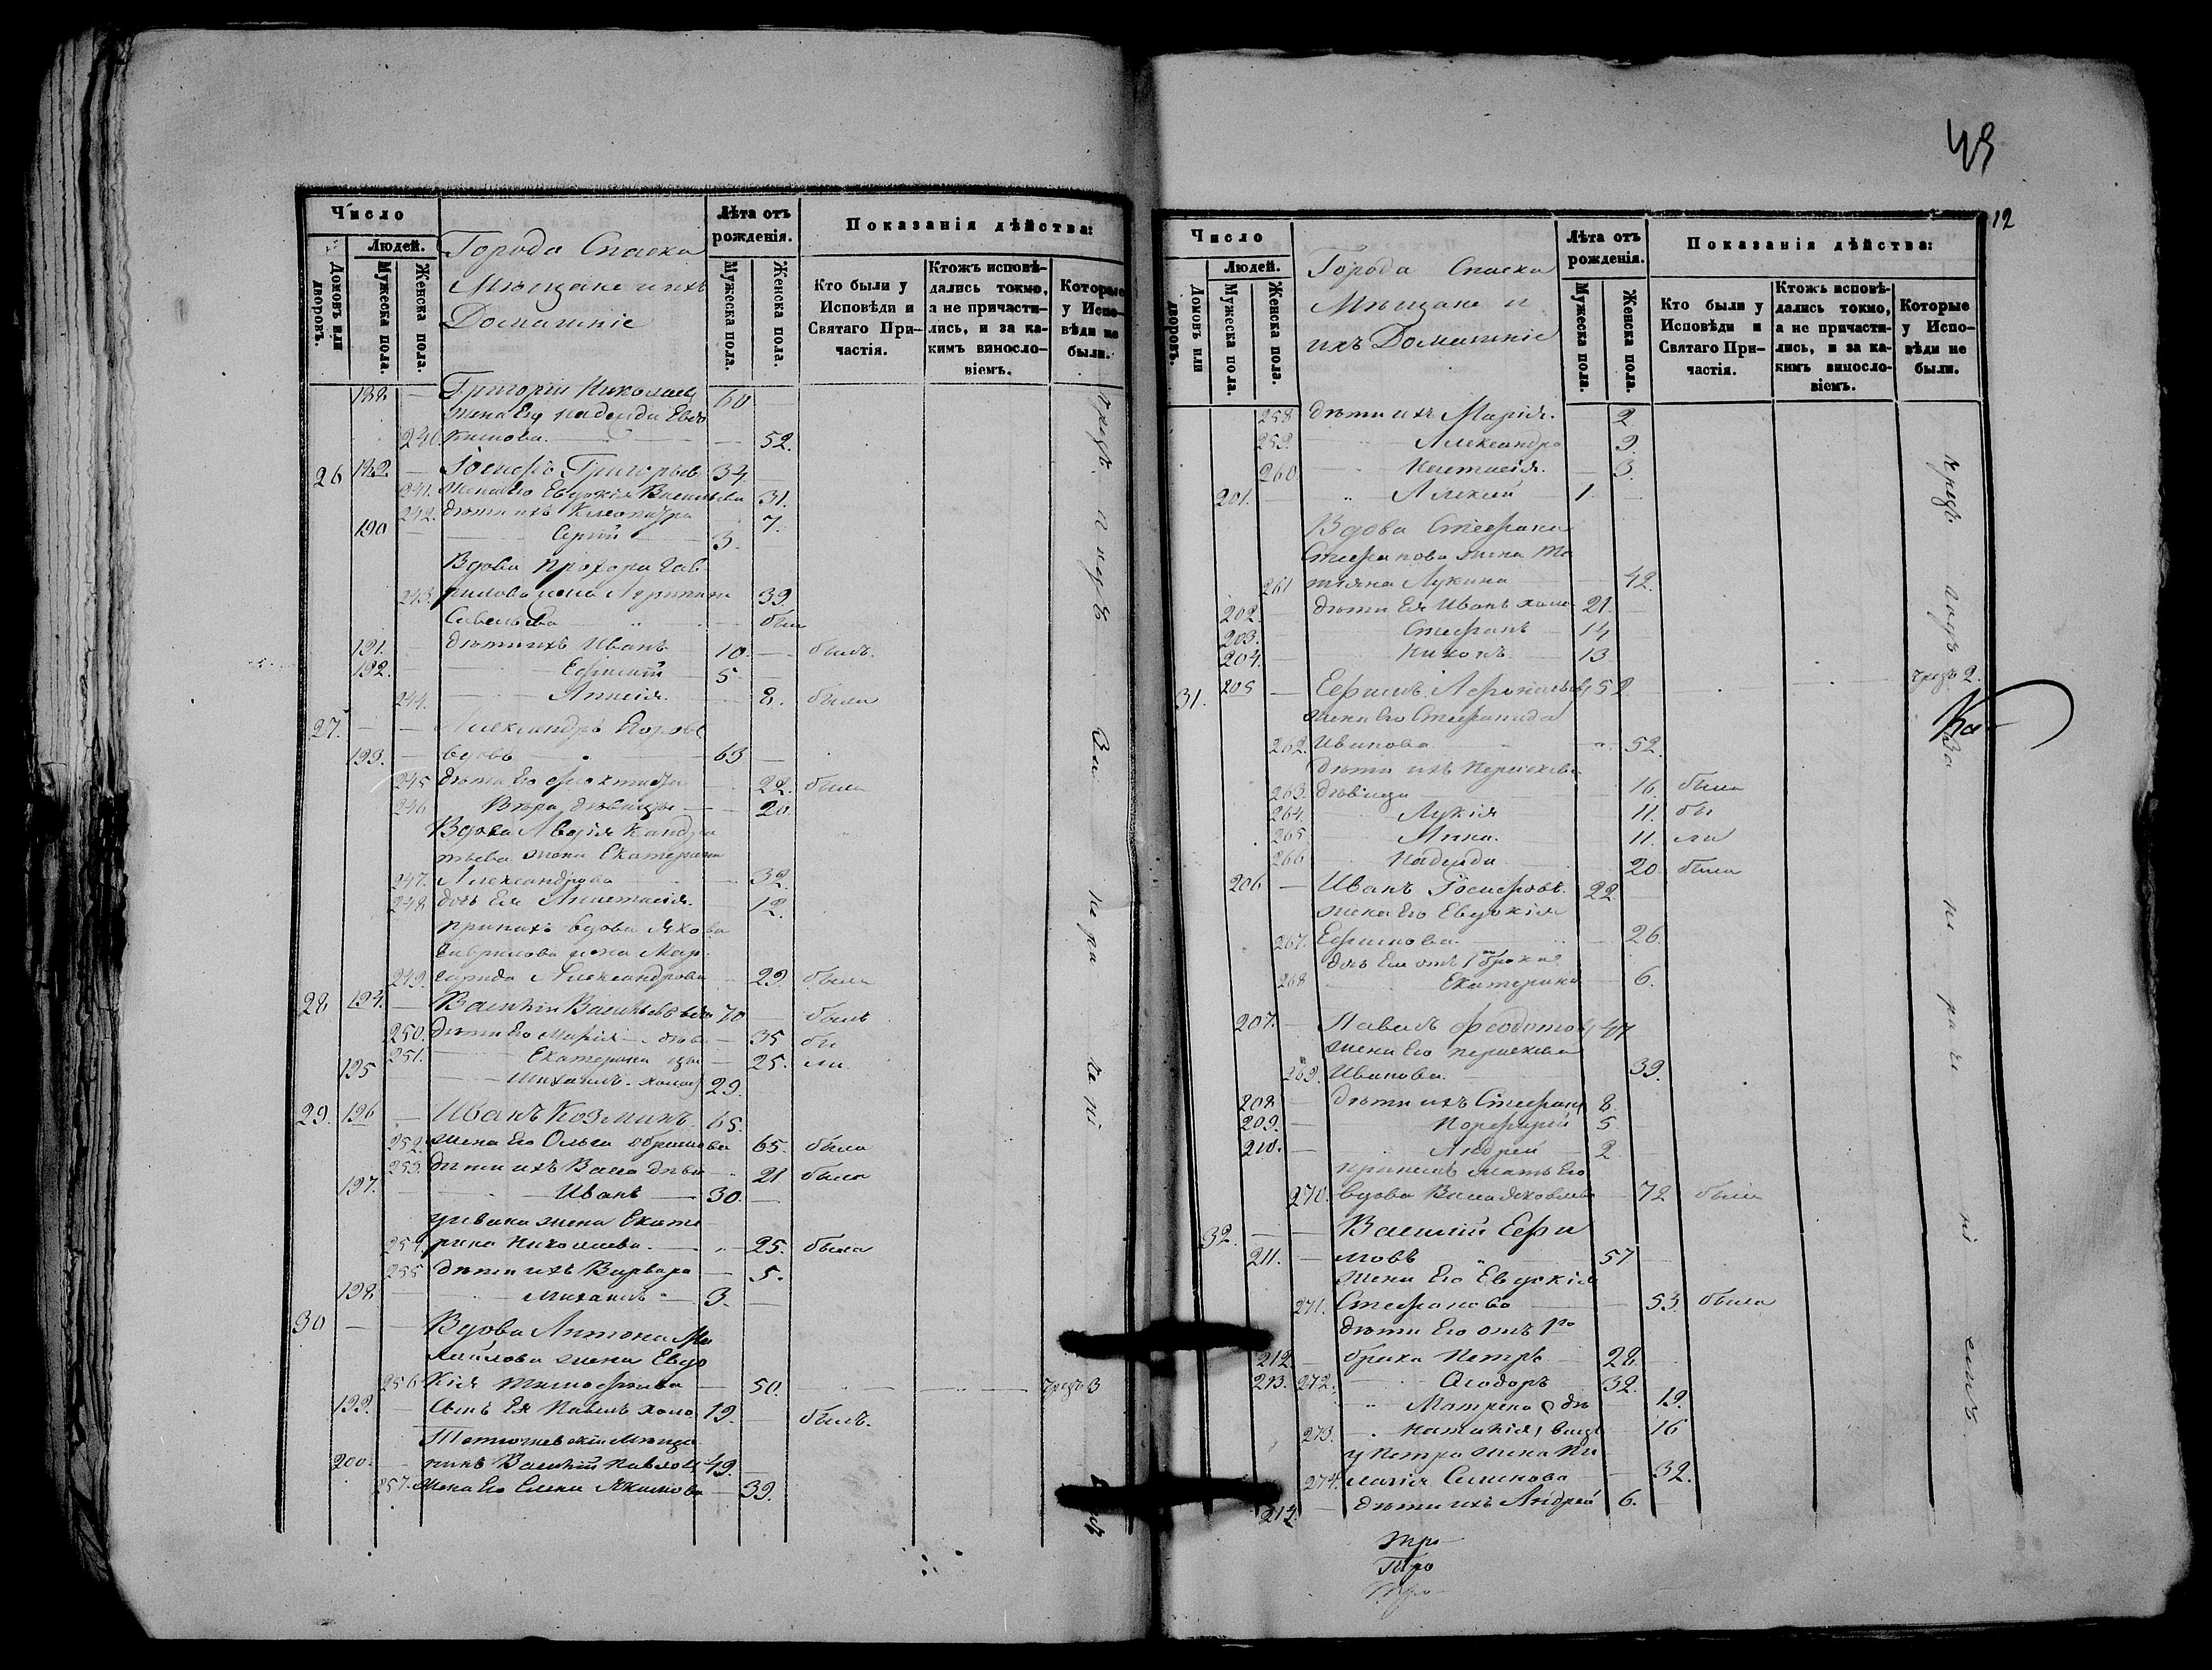 Число
Людей.
Домовъ или дворовъ.
Мужеска пола.
Женска пола.
Города Спаска
Мѣщане и ихъ
Домашніе
Лѣта отъ рожденія.
Мужеска пола.
Женска пола.
Показанія дѣйства:
Кто были у Исповѣди и Святаго Причастія.
Ктожъ исповѣдались токмо, а не причастились, и за какимъ винословіемъ.
Которые у Исповѣди не были.
188 — Григорій Николаев 60 —
жена Его Надежда Евдо
240 кимова 52.
26 189. — Іосифъ Григорьев 34.
241. жена Его Евдокія Васильева 31.
242. дѣти ихъ Клеопатра 7.
190 Сергій 3.
Вдова Прохора Гав
243. рилова жена Агрипина 39.
Савельева была
191. дѣти ихъ Иванъ 10. — былъ.
192. Ефимій 5 —
244. Аннсія 8. была
27. — — Александръ Егоровъ
193. — вдовъ 63 —
245 дѣти Его 22. была
246 Вѣра, дѣвицы 20.
Вдова Авдія Кондра
тьева жена Екатерина
247. Александрова 32.
248 дочь Ея Анастасія 12.
при нихъ вдова Якова
Гаврилова жена Мар
249. гарита Александрова 29. была
28 194. — Василій Васильевъ вдо 70 — былъ
250. дѣти Его Марія дѣви 35 бы
251. Екатерина цы 25. ли
195 Михаилъ холос 29.
29. 196 — Иванъ Козминъ 65.
252. жена Его Ольга Ефимова 65. была
253. дѣти ихъ Васса дѣви 21 была
197. Иванъ 30. —
у Ивана жена Екате
254. рина Николаева 25. была
255 дѣти ихъ Варвара 5.
198 Михаилъ 3. —
30 — — Вдова Антона Ми
хайлова жена Евдо
256 кія Тимофеева 50. чрезъ 3
199. — сынъ Ея Павелъ холо 19. — былъ.
Тетюшевскій мѣща
200. — нинъ Василій Павлов 49.
257. жена Его Елена Якимова 39.
чрезъ годъ За нера чені емъ
49
12
Число
Людей.
Домовъ или дворовъ.
Мужеска пола.
Женска пола.
Города Спаска
Мѣщане и
ихъ Домашніе
Лѣта отъ рожденія.
Мужеска пола.
Женска пола.
Показанія дѣйства:
Кто были у Исповѣди и Святаго Причастія.
Ктожъ исповѣдались токмо, а не причастились, и за какимъ винословіемъ.
Которые у Исповѣди не были.
258 дѣти ихъ Марія. — 2
259. Александра 9.
260 Анастасія. — 3.
201. — Алексій 1. —
Вдова Стефана
Стефанова жена Та
261 тіяна Лукина 42.
202. — дѣти Ея Иванъ холо 21. —
203. Стефанъ 14
204. Никонъ 13
31. 205 — Ефимъ Афонасьев 52 чрезъ 2.
жена Его Стефанида
262. Иванова 52.
дѣти ихъ Параскева
263. дѣвица 16. была
264. Лукія 11. бы
265 Анна. 11. ли
266 Надежда 20 была
206 — Иванъ Іосифовъ 22 —
жена Его Евдокія
267. Ефимова. 26.
дочь Ея отъ 1го брака
268 Екатерина 6.
207. — Павелъ Феодотов 47
жена Его Параскева
269. Иванова. 39.
208 — дѣти ихъ Стефан 8.
209. Порфирій 5
210. Андрей 2
при немъ мать Его
270. вдова Васса Яковлева 72 была
32. — — Василій Ефи
211. — мовъ 57 —
жена Его Евдокія
271. Стефанова 53. была
дѣти Его отъ 1го
212. — брака Петръ 28. —
213. 272. Ѳеодоръ 32.
Матрена дѣ 19.
273. Наталія вицы 16
у Петра жена Пе
274. лагія Семенова 32.
214. — дѣти ихъ Андрей 6. —
чрезъ годъ За не ра че ні емъ
Тро
Тро
Тро